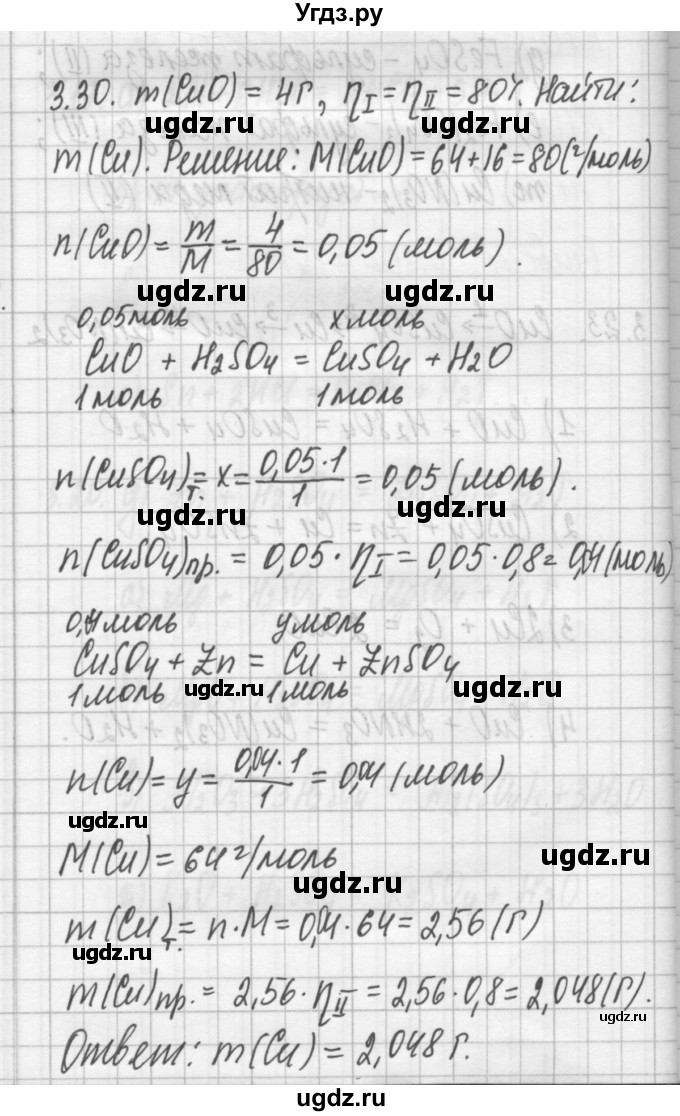 Угдз.ру
3.30. m(CuO) = 4г, ηI = ηII = 80%. Найти:
ugdz.ru ugdz.ru
m(Cu). Решение: M(CuO) = 64+16 = 80(г/моль)
n(CuO) = m/M = 4/80 = 0,05 (моль).
ugdz.ru ugdz.ru
0,05моль x моль
CuO + H₂SO₄ = CuSO₄ + H₂O
ugdz.ru
1 моль 1 моль
n(CuSO₄)т. = x = 0,05·1/1 = 0,05 (моль).
ugdz.ru ugdz.ru
n(CuSO₄)пр. = 0,05 · ηI = 0,05 · 0,8 = 0,04 (моль)
0,04моль y моль
ugdz.ru
CuSO₄ + Zn = Cu + ZnSO₄
1 моль 1 моль
ugdz.ru ugdz.ru
n(Cu) = y = 0,04·1/1 = 0,04 (моль)
ugdz.ru
M(Cu) = 64 г/моль
ugdz.ru ugdz.ru
m(Cu)т. = n·M = 0,04·64 = 2,56 (г)
ugdz.ru
m(Cu)пр. = 2,56 · ηII = 2,56 · 0,8 = 2,048 (г).
ugdz.ru
Ответ: m(Cu) = 2,048 г.
ugdz.ru
ugdz.ru